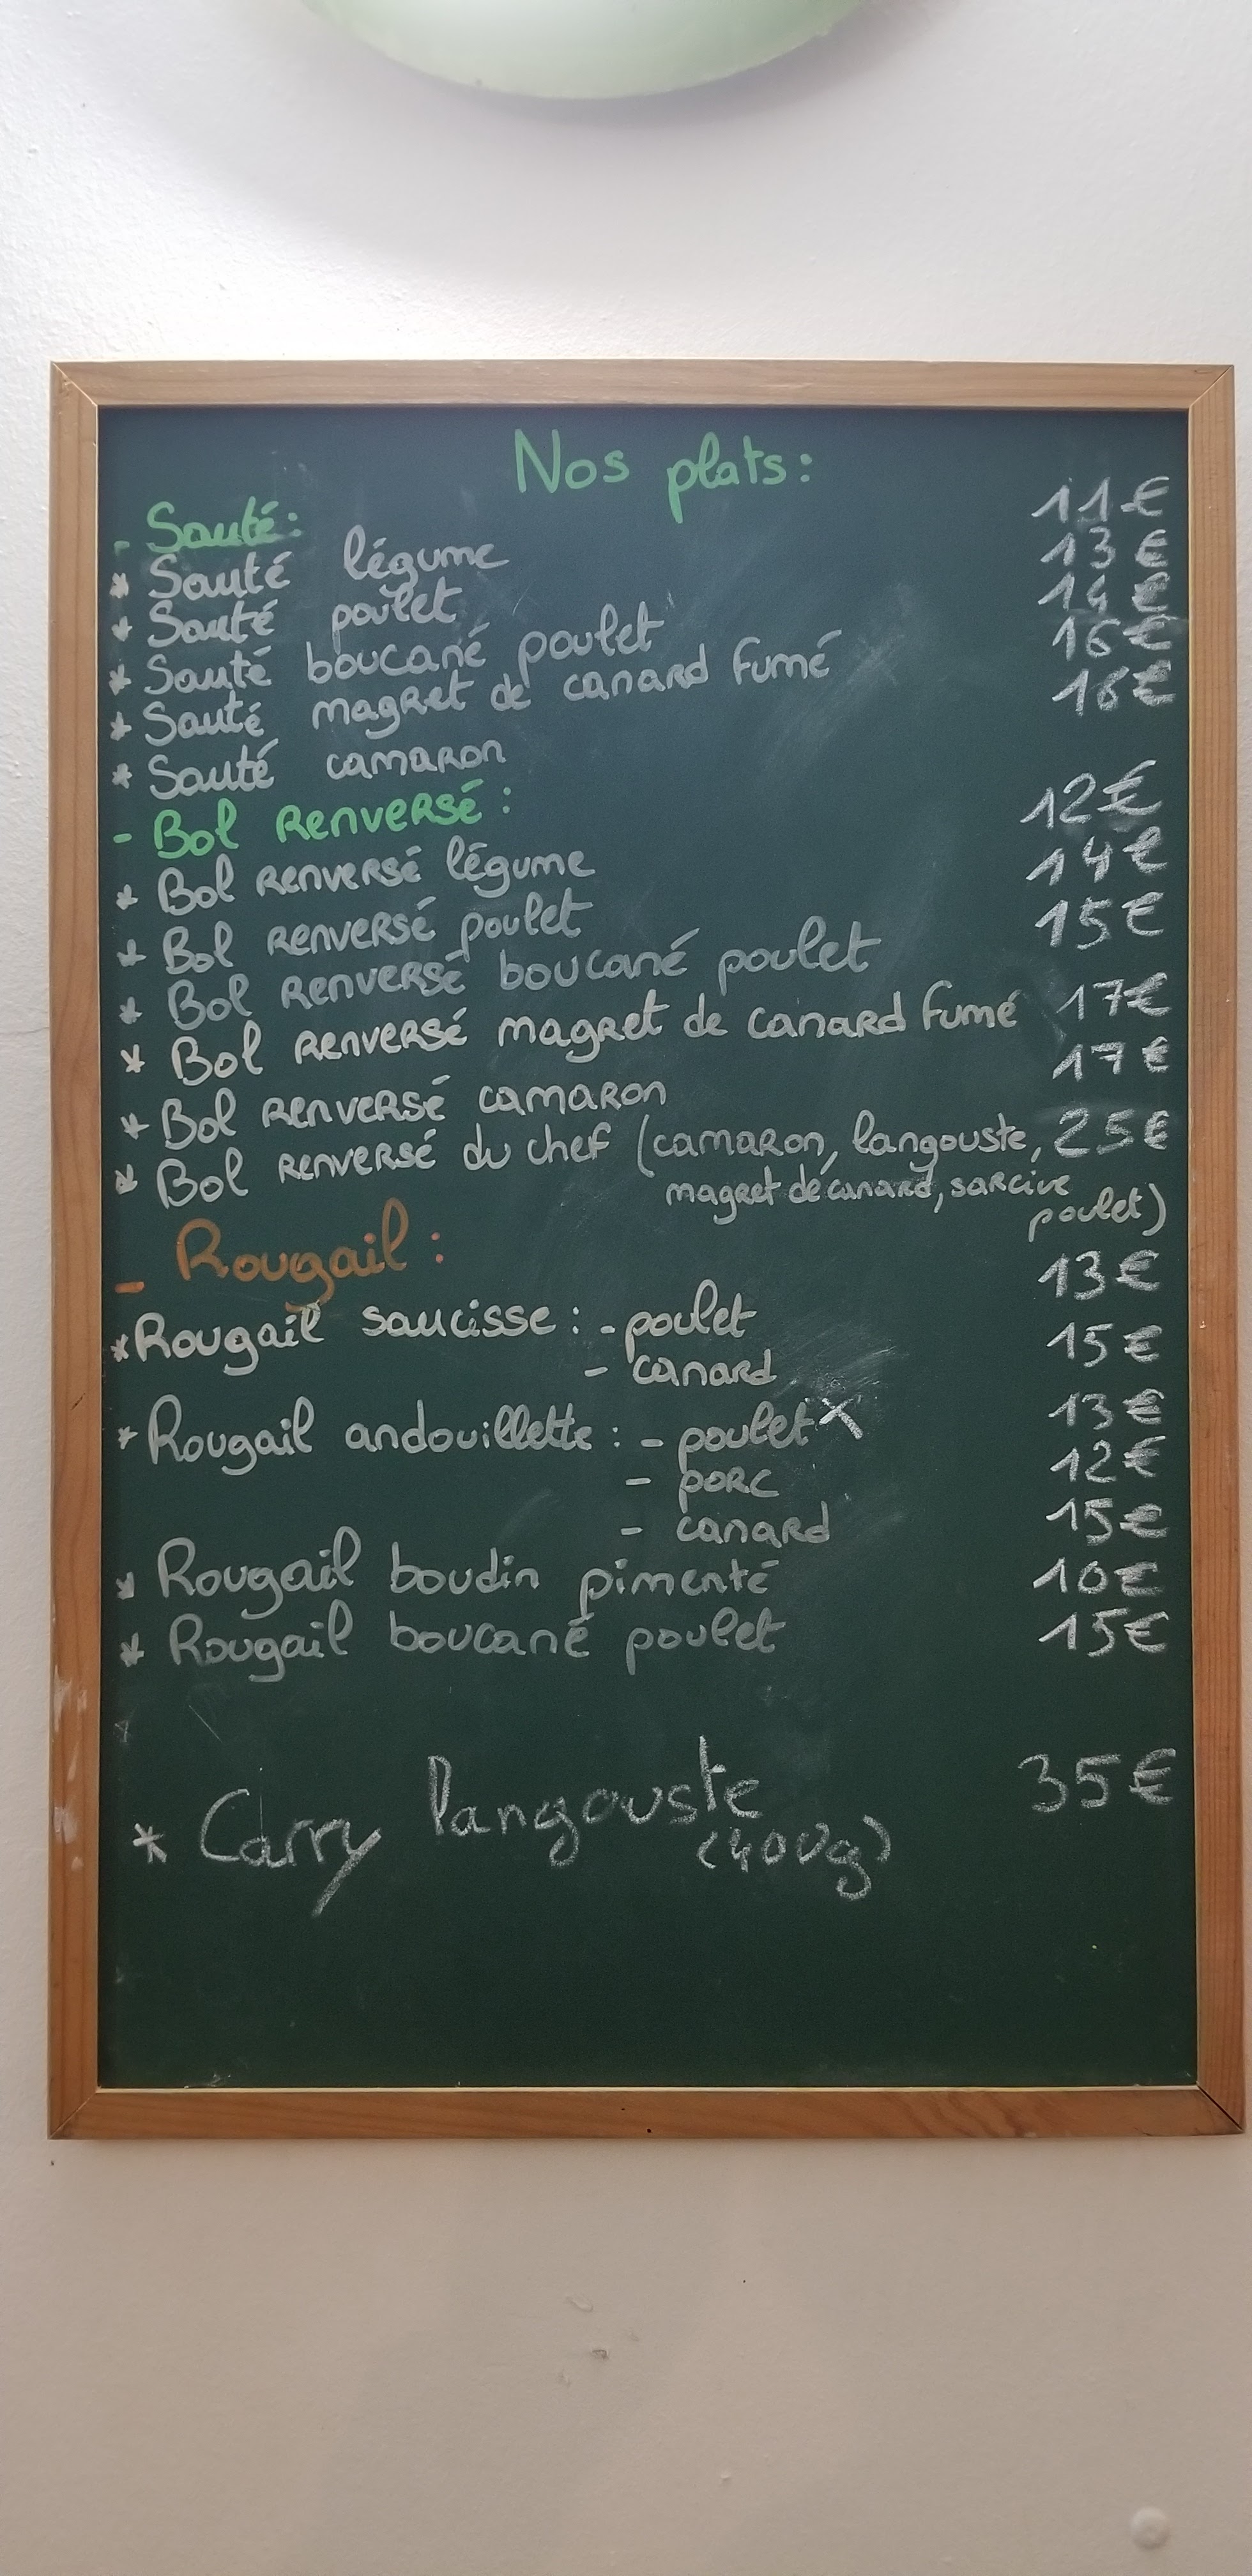 Nos plats:
- Sauté:
* Sauté légume 11€
* Sauté poulet 13€
* Sauté boucané poulet 14€
* Sauté magret de canard fumé 16€
* Sauté camaron 16€
- Bol renversé:
* Bol renversé légume 12€
* Bol renversé poulet 14€
* Bol renversé boucané poulet 15€
* Bol renversé magret de canard fumé 17€
* Bol renversé camaron 17€
* Bol renversé du chef (camaron, langouste, 25€
magret de canard, sarcive
poulet)
- Rougail:
* Rougail saucisse: - poulet 13€
- canard 15€
* Rougail andouillette: - poulet X 13€
- porc 12€
- canard 15€
* Rougail boudin pimenté 10€
* Rougail boucané poulet 15€
* Carry langouste 35€
(400g)